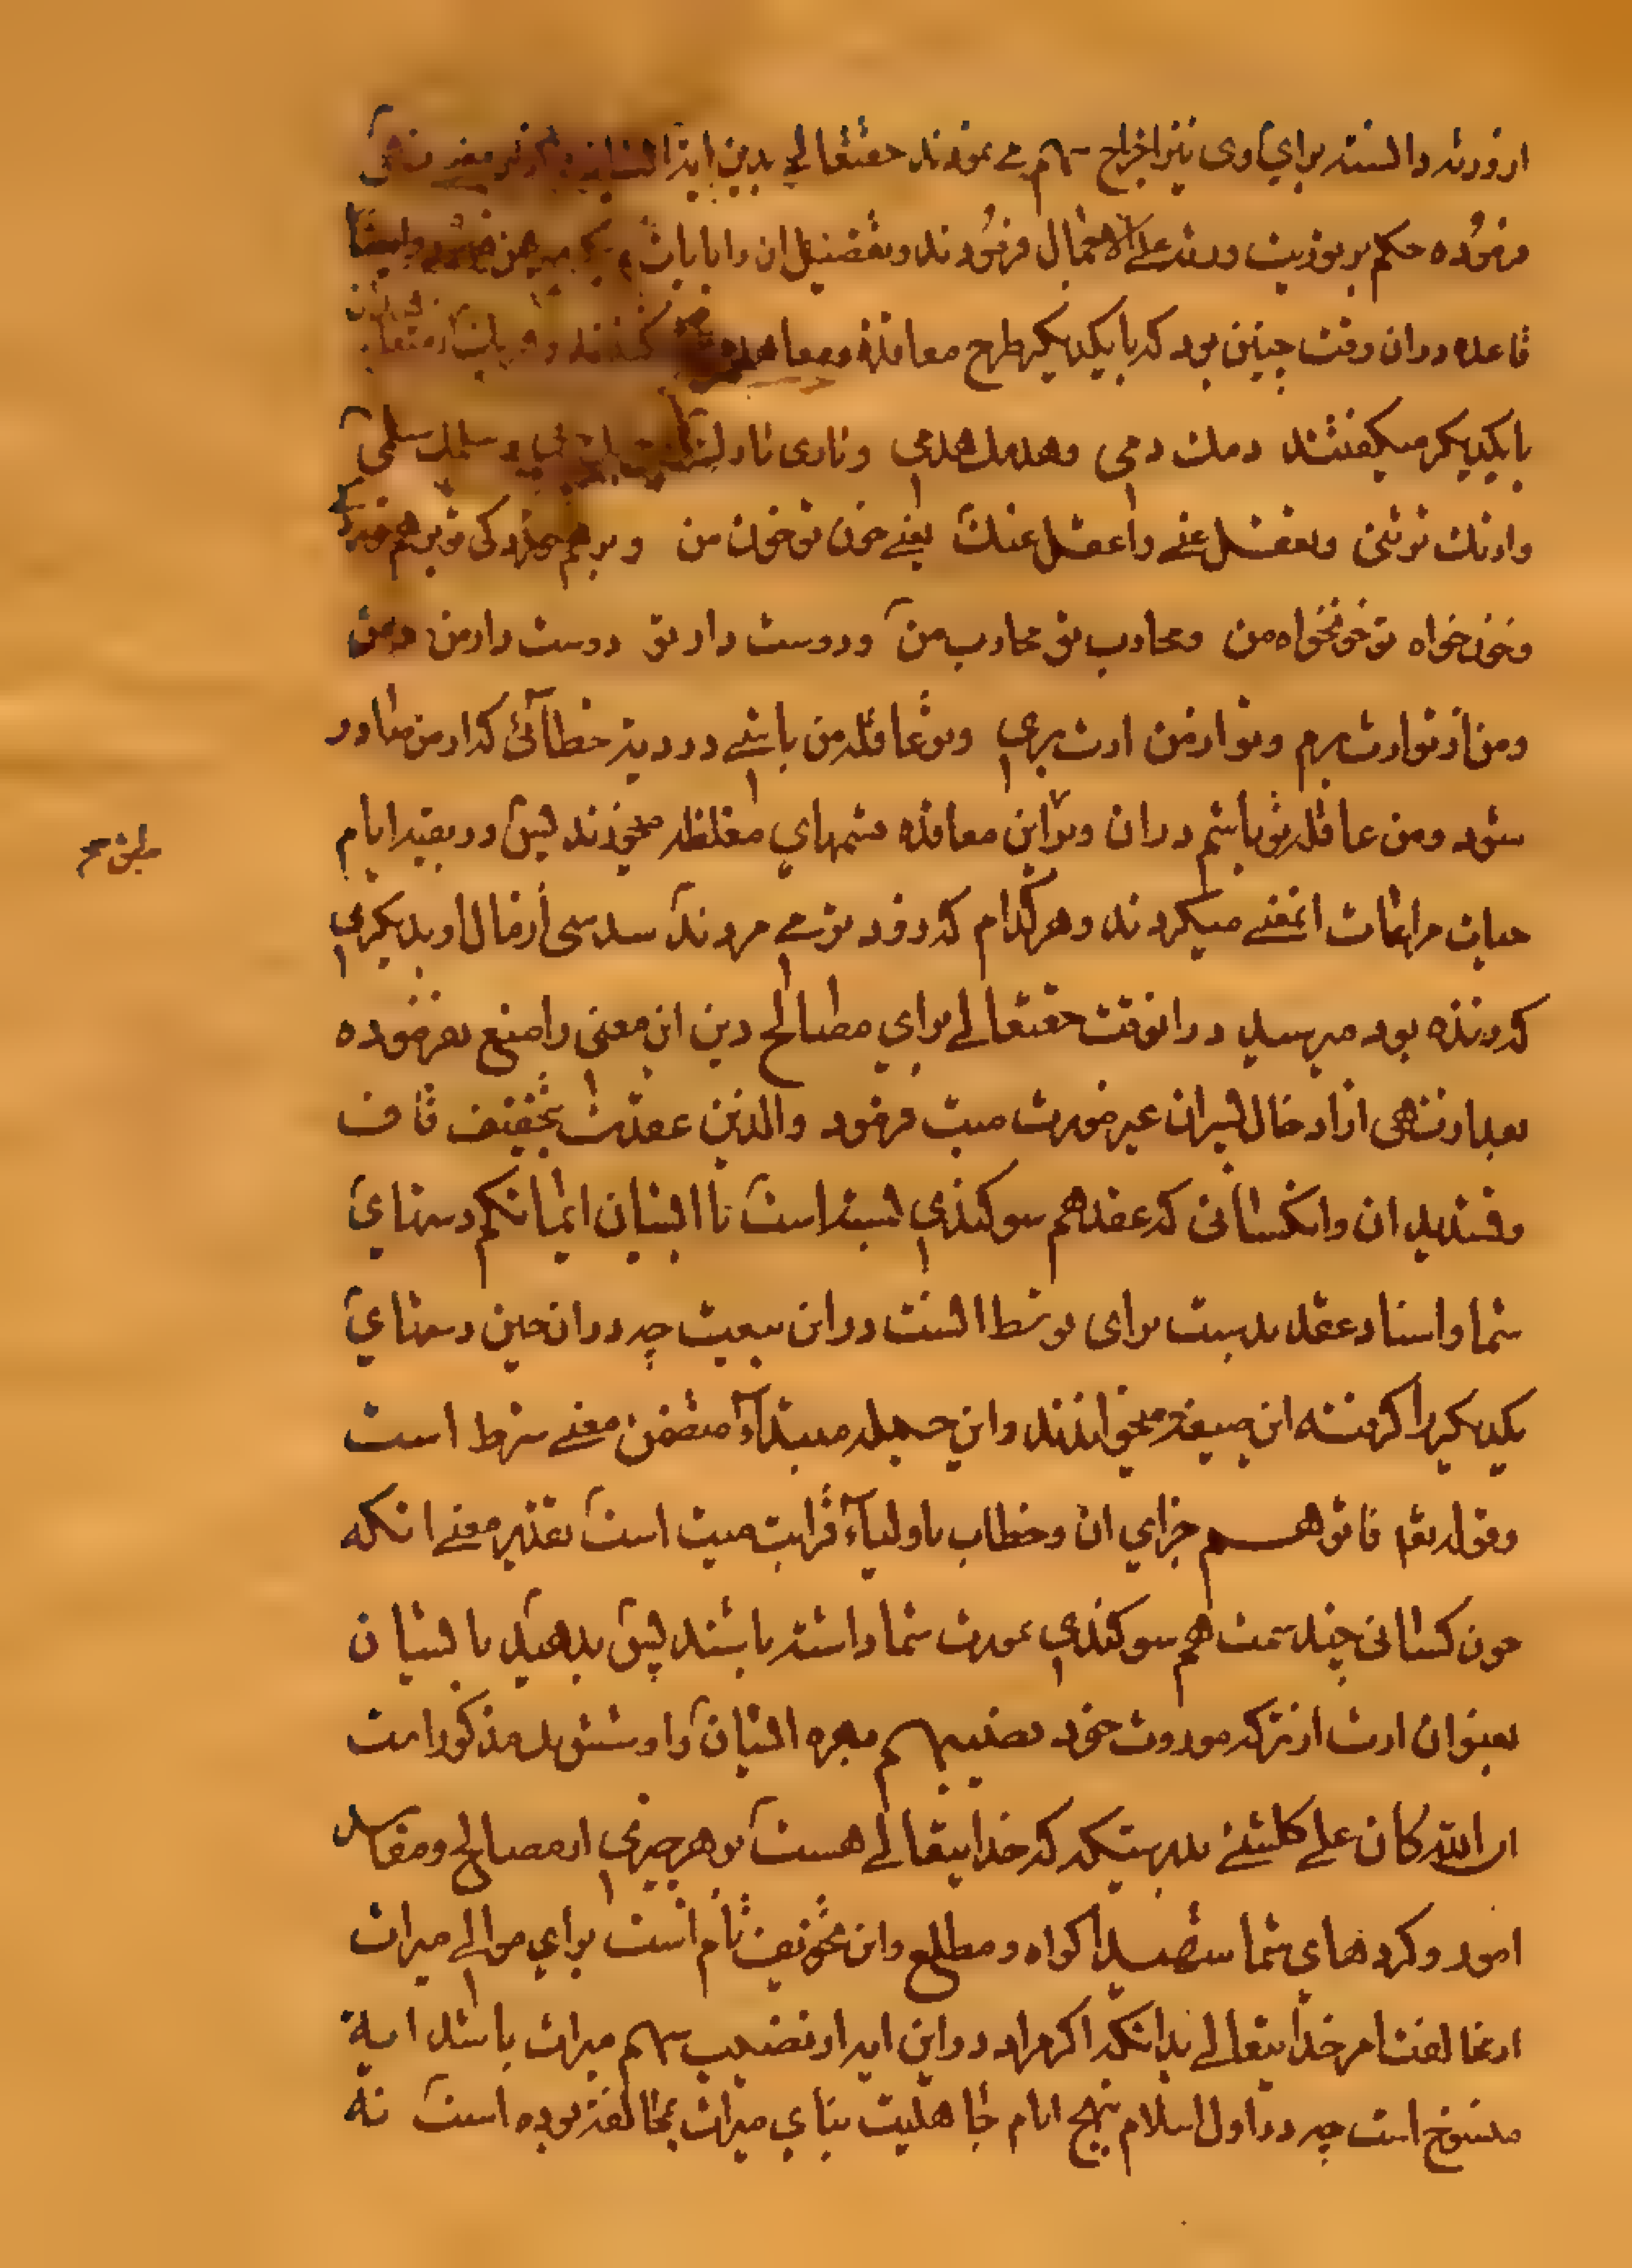 از ورثه دانسته برای وی نیز اخراج سهم می نمودند حقتعالی بدین
فرموده حکم بر توریث ورثه علی الاجمال فرمودند و تفضیل ان را بایات
قاعده در ان وقت چنین بود که با یکدیکر طرح معاقده و معاهده
با یکدیکر میکفتند دمک دمی و هدمک هدمی و ثاری ثارک و سلمک سلمی
وارثک ترثنی و تعقل عنی و اعقل عنک یعنی خون تو خون من و
و خونخواه تو خونخواه من و محارب تو محارب من و دوست دار تو دوست دار من
و من از تو ارث برم و تو از من ارث بری و تو عاقله من باشی در دیة خطائی که از من صادر
شود و من عاقله تو باشم در ان و بر این معاقده قسمهای مغلظه میخوردند پس در بقیه ایام
حیات مراعات انمعنی میکردند و هر کدام که زودتر می مردند سدسی از مال او بدیکری
که زنده بود میرسید در انوقت حقتعالی برای مصالح دین این معنی را منع نفرموده
بعد از نهی از ادخال پسران غیر در ارث میت فرمود والذین عقدت بتخفیف قاف
و تشدید ان و انکسانی که عقد هم سوکندی بسته است با ایشان ایمانکم دستهای
شما و اسناد عقد بدست برای توسط انست در این بیعت چه در ان حین دستهای
یکدیکر را کرفته این صیغه میخواندند و این جمله مبتداء متضمن معنی شرط است
و قوله تع فاتوهم جزای ان و خطاب باولیاء قرابت میت است بتقدیر معنی انکه
چون کسانی چند سمت هم سوکندی بمورث شما داشته باشند پس بدهید بایشان
بعنوان ارث از ترکه موروث خود نصیبهم بهره ایشان را و سدس مذکور است
ان الله کان علی کل شئ بدرستیکه که خدایتعالی هست بر هر چیزی از مصالح و مفاسد
امور و کردهای شما شهیدا کواه و مطلع و این تخویف تام است برای موالی میراث
از مخالفت امر خدایتعالی بدانکه اکر مراد در این ایه از نصیب سهم میراث باشد ایة
منسوخ است چه در اول اسلام بنهج ایام جاهلیت بنای میراث بمحالفة بوده است نه